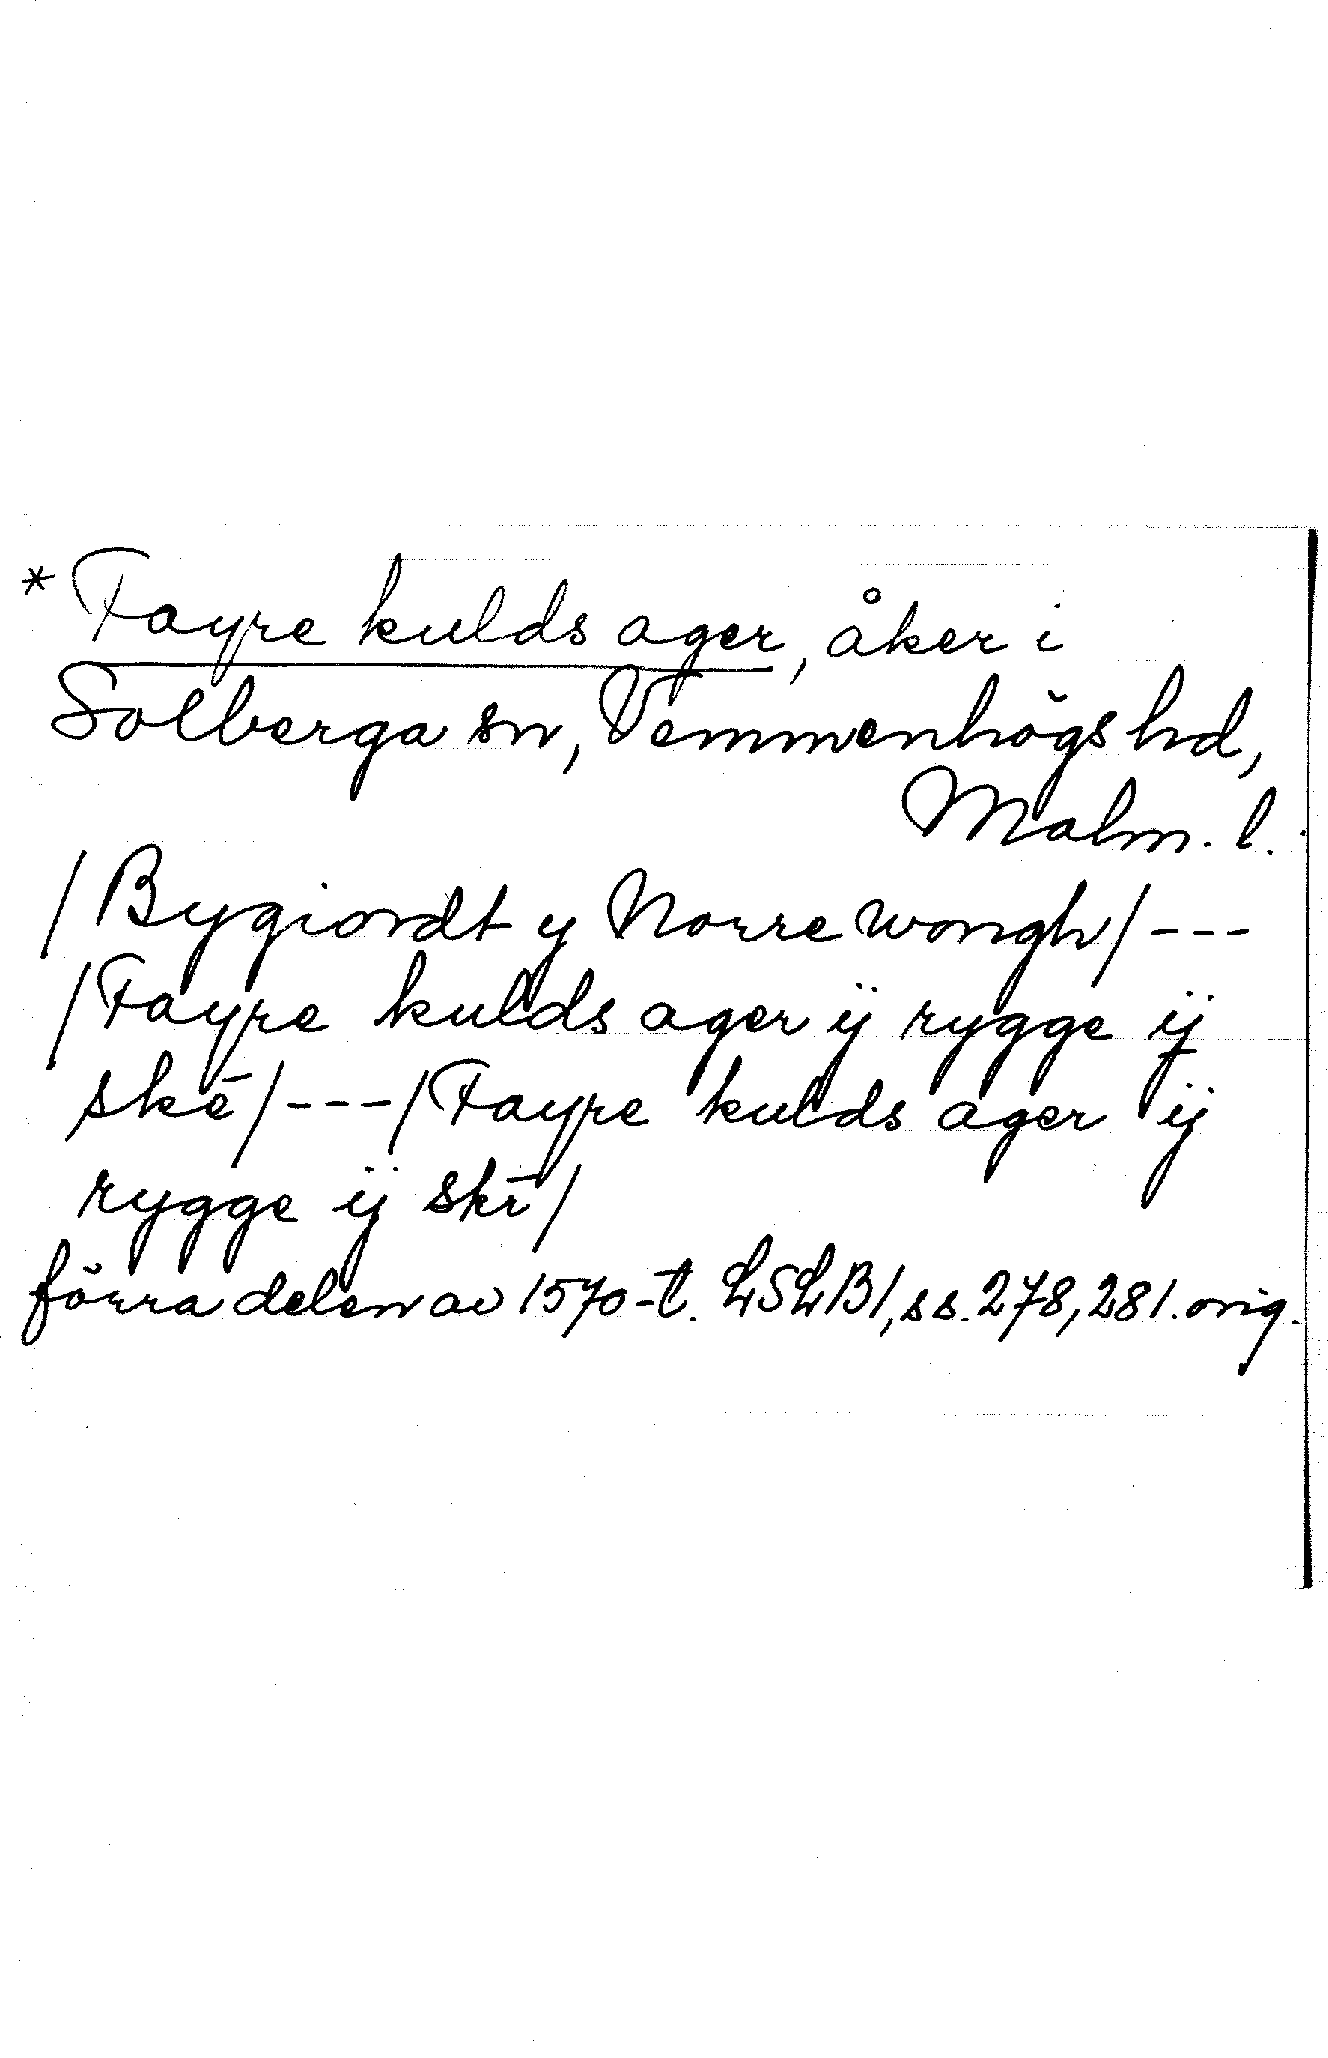 * Fayre kulds ager, åker i
Solberga sn, Vemmenhögs hd,
Malm. l.
/Bygiordt y Norre wongh/---
/Fayre kulds ager ÿ rygge ÿ
skē/---/Fayre kulds ager ÿ
rygge ÿ skī/
förra delen av 1570-t. LSLB1, ss. 278, 281. orig.